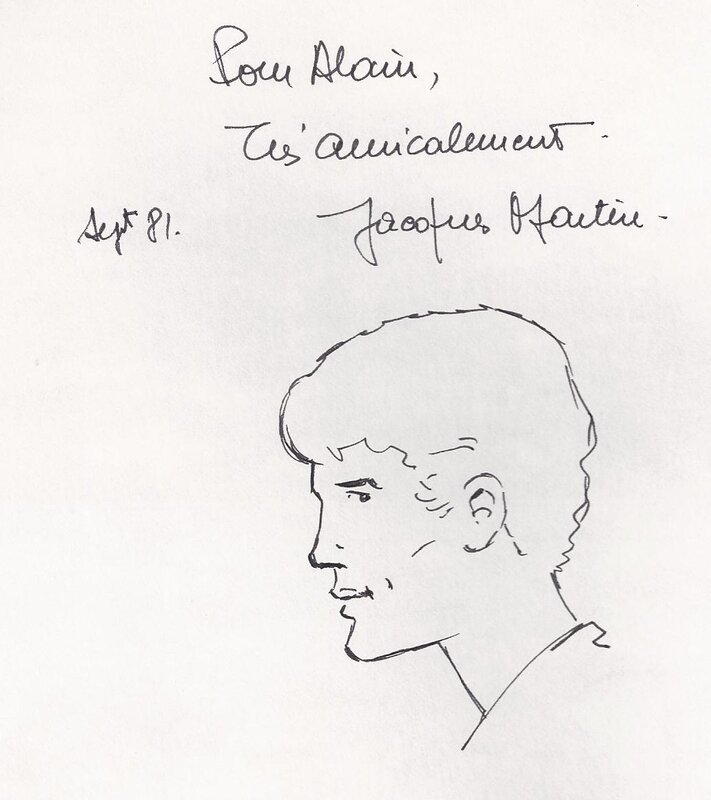 Pour Alain,
Très amicalement.
Sept 81.
Jacques Martin.